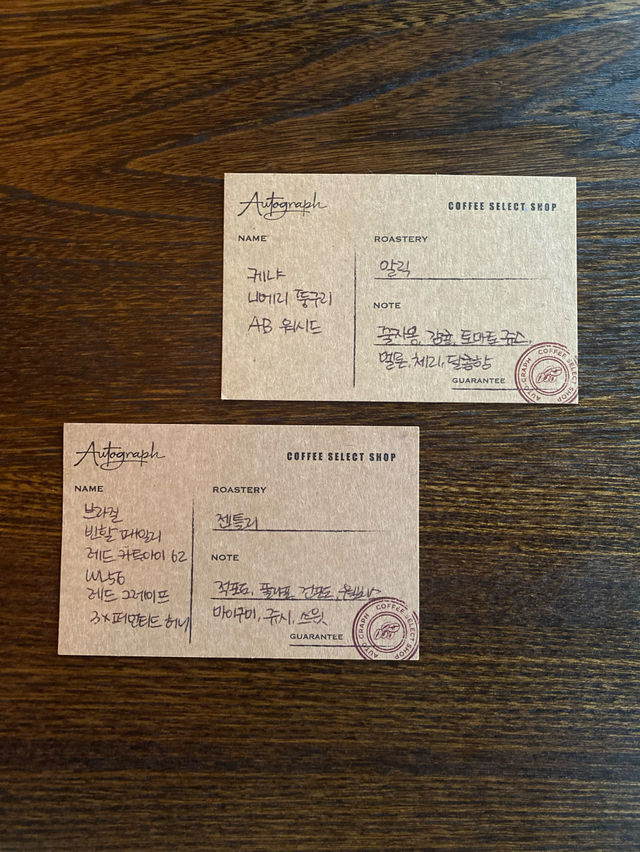 Autograph
COFFEE SELECT SHOP
NAME
케냐
니에리 뚱구리
AB 워시드
ROASTERY
알릭
NOTE
꿀자몽, 감귤, 토마토 쥬스,
멜론, 체리, 달콤함
GUARANTEE
AUTOGRAPH COFFEE SELECT SHOP
Autograph
COFFEE SELECT SHOP
NAME
브라질
빈할 패밀리
레드 카투아이 62
M56
레드 그레이프
3x 퍼먼티드 허니
ROASTERY
젠틀리
NOTE
적포도, 플라워, 건포도,
마이구미, 쥬시, 스윗
GUARANTEE
AUTOGRAPH COFFEE SELECT SHOP